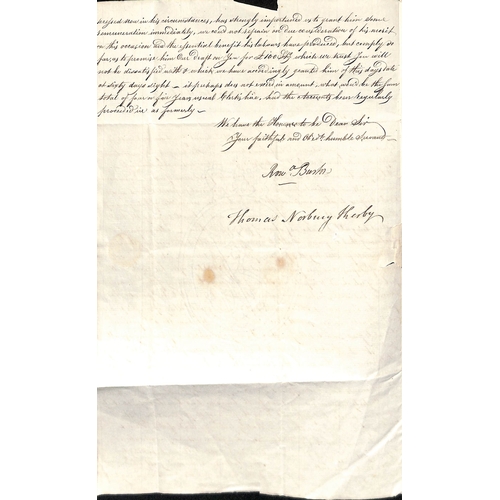 pressed now in his circumstances, has strongly importuned us to grant him some
remuneration immediately, we could not refrain in due consideration of his merit
on this occasion and the essential benefit his labours have produced, but comply so
far, as to promise him Our Draft on You for £100 Stg which we trust You will
not be dissatisfied with & which we have accordingly granted him of this days date
at sixty days sight — it perhaps does not exceed in amount, what would be the sum
total of four or five Years usual Clerk's hire, had the Accounts been regularly
proceeded in as formerly —
We have the Honor to be Dear Sir
Your faithful and Obedt humble Servants —
Thomas Norbury Kerby